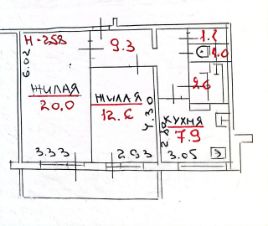 H-258
9.3
1.2
1.0
6.02
ЖИЛАЯ
20,0
ЖИЛАЯ
12.6
2.6
4.30
КУХНЯ
7.9
3.33
2.93
3.05